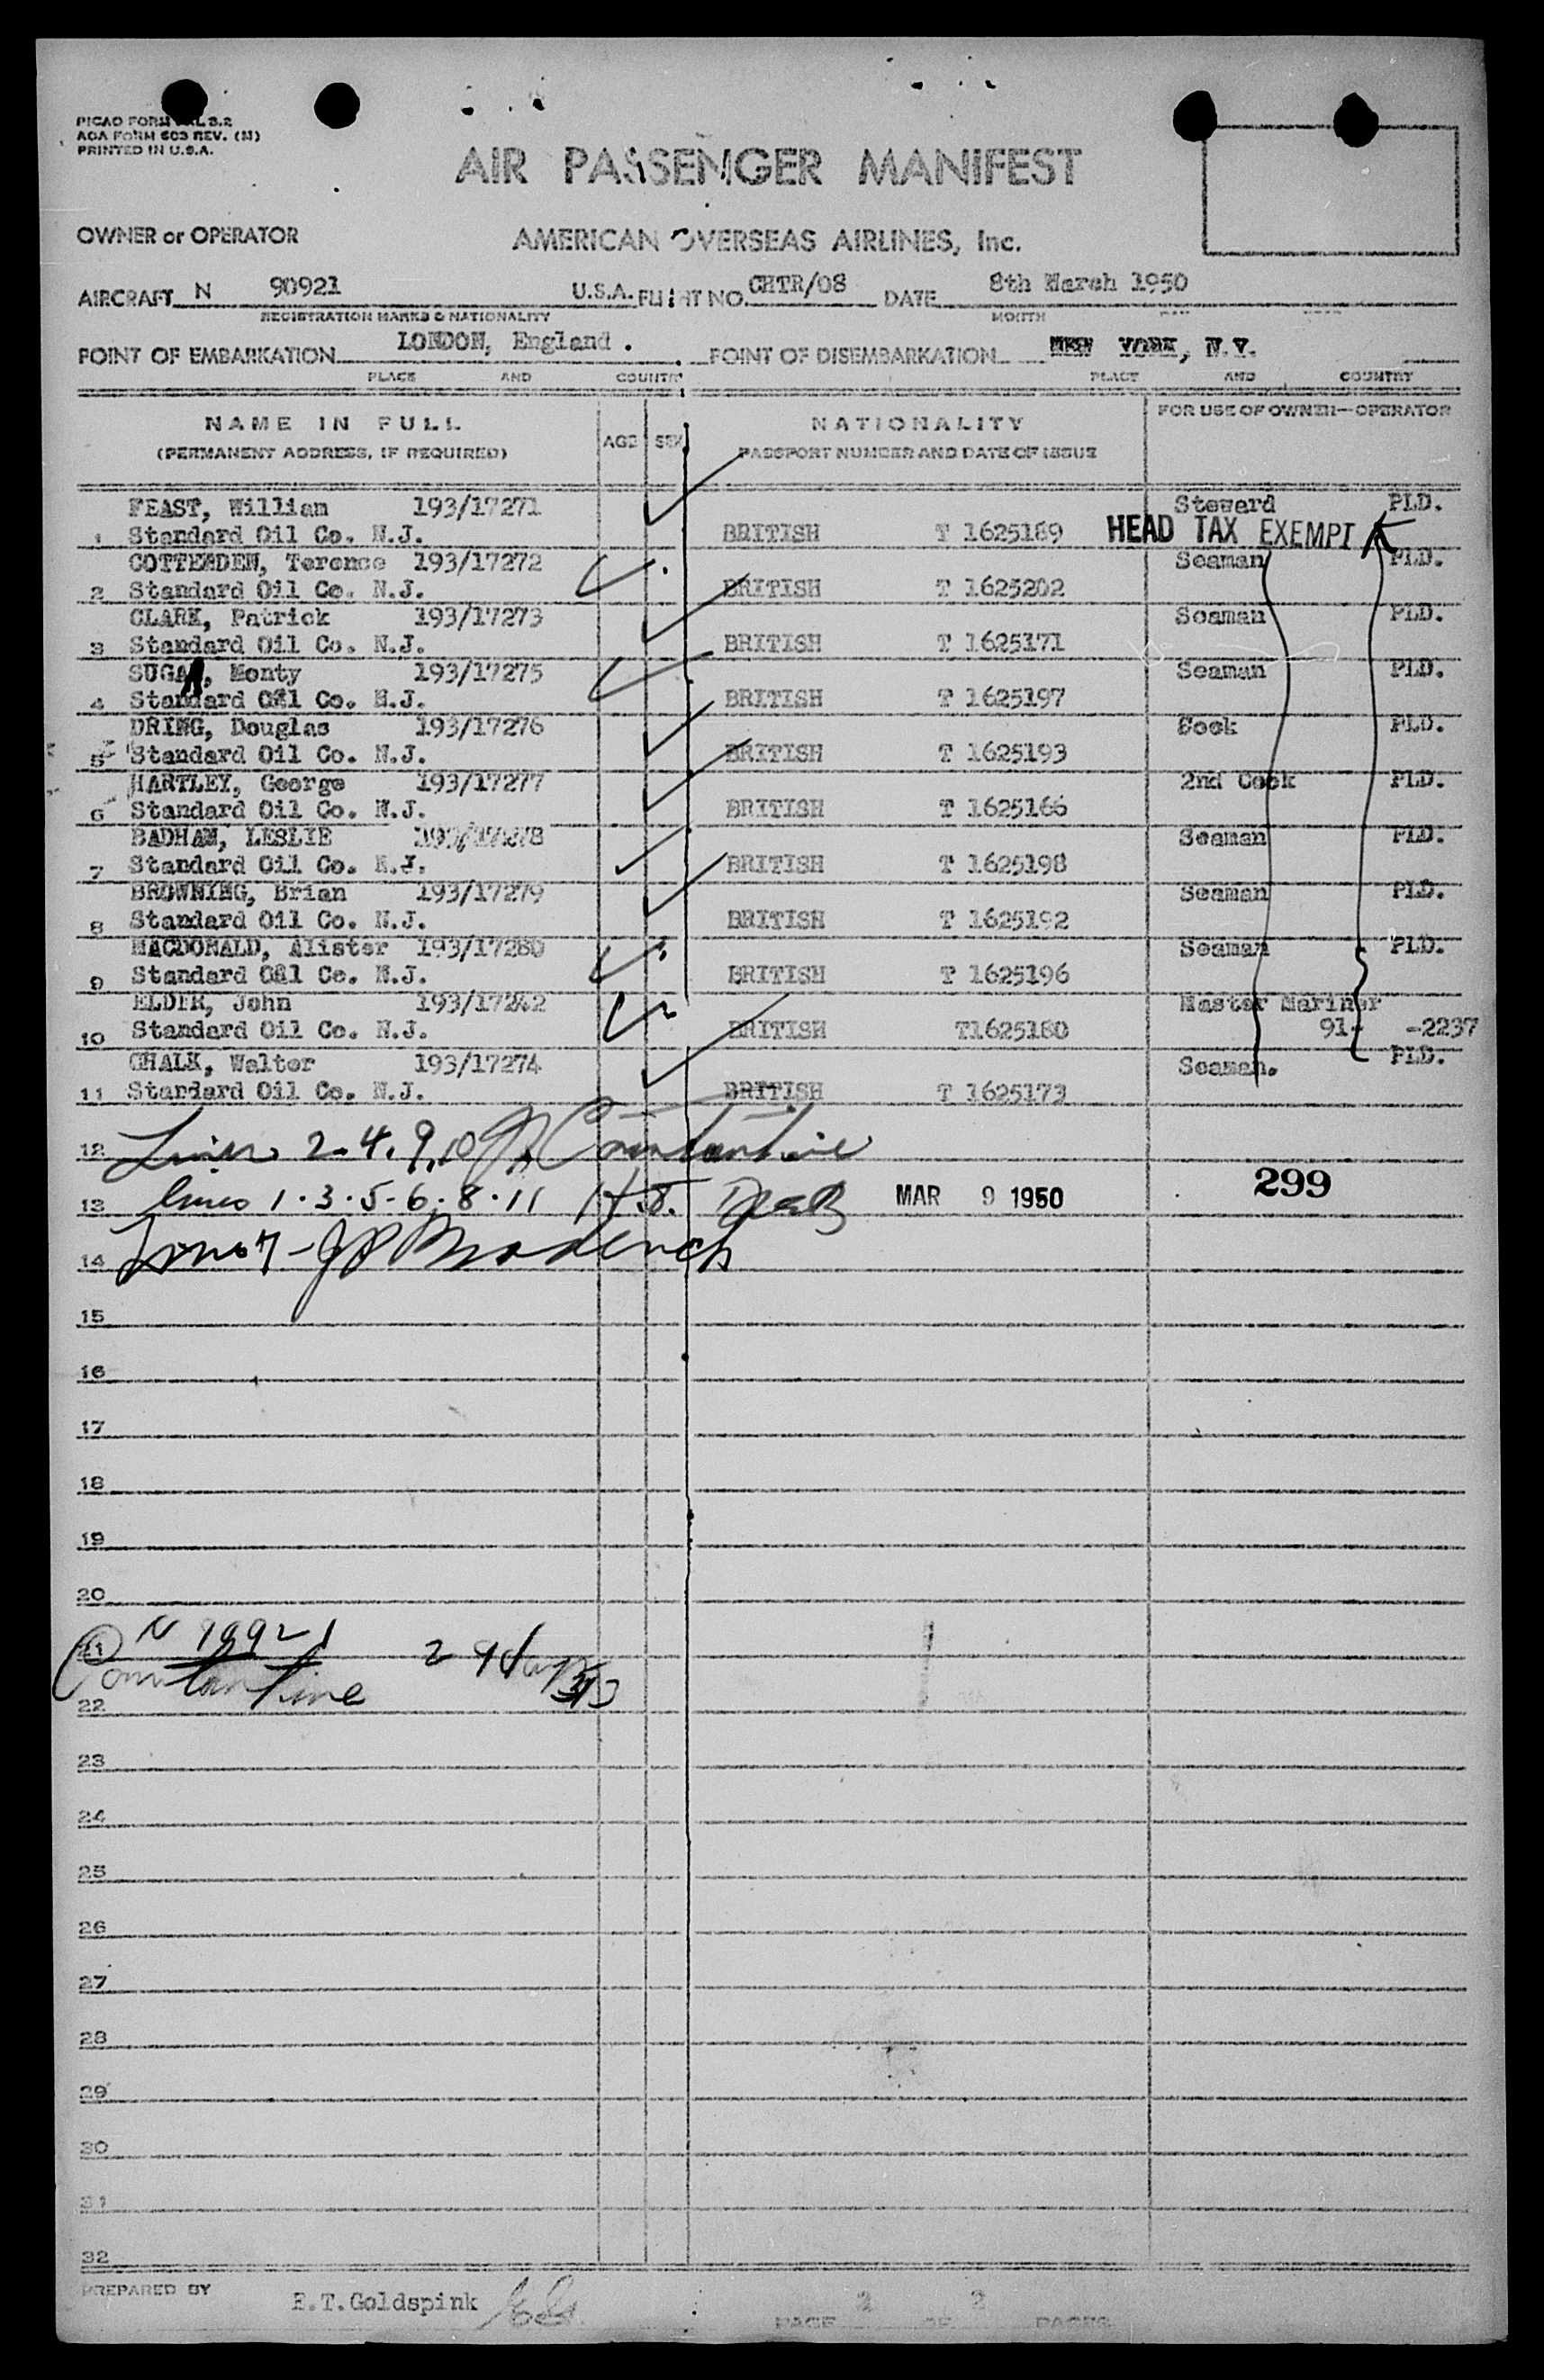 PICAO FORM
AOA FORM 603 REV. (M)
PRINTED IN U.S.A.
AIR PASSENGER MANIFEST
OWNER or OPERATOR AMERICAN OVERSEAS AIRLINES, Inc.
AIRCRAFT N 90921 U.S.A. FLIGHT NO. CHTR/08 DATE 8th March 1950
REGISTRATION MARKS & NATIONALITY MONTH DAY YEAR
POINT OF EMBARKATION LONDON, England. POINT OF DISEMBARKATION NEW YORK, N.Y.
PLACE AND COUNTRY PLACE AND COUNTRY
NAME IN FULL NATIONALITY FOR USE OF OWNER—OPERATOR
(PERMANENT ADDRESS, IF REQUIRED) AGE SEX PASSPORT NUMBER AND DATE OF ISSUE
FEAST, William 193/17271 Steward PLD.
1 Standard Oil Co. N.J. BRITISH T 1625189 HEAD TAX EXEMPT
COTTENDEN, Terence 193/17272 Seaman PLD.
2 Standard Oil Co. N.J. BRITISH T 1625202
CLARK, Patrick 193/17273 Seaman PLD.
3 Standard Oil Co. N.J. BRITISH T 1625171
SUGA, Monty 193/17275 Seaman PLD.
4 Standard Oil Co. N.J. BRITISH T 1625197
DRING, Douglas 193/17276 Cook PLD.
5 Standard Oil Co. N.J. BRITISH T 1625193
HARTLEY, George 193/17277 2nd Cook PLD.
6 Standard Oil Co. N.J. BRITISH T 1625166
BADHAM, LESLIE 193/17278 Seaman PLD.
7 Standard Oil Co. N.J. BRITISH T 1625198
BROWNING, Brian 193/17279 Seaman PLD.
8 Standard Oil Co. N.J. BRITISH T 1625192
MACDONALD, Alister 193/17280 Seaman PLD.
9 Standard Oil Co. N.J. BRITISH T 1625196
ELDER, John 193/17242 Master Mariner
10 Standard Oil Co. N.J. BRITISH T1625180 91- -2237
CHALK, Walter 193/17274 Seaman. PLD.
11 Standard Oil Co. N.J. BRITISH T 1625173
12 Lines 2.4.9.10 Constantine
13 lines 1.3.5.6.8.11 MAR 9 1950 299
14 Line 7 -
15
16
17
18
19
20
21 N 90921
22 Constantine
23
24
25
26
27
28
29
30
31
32
PREPARED BY E.T.Goldspink PAGE 2 OF 2 PAGES